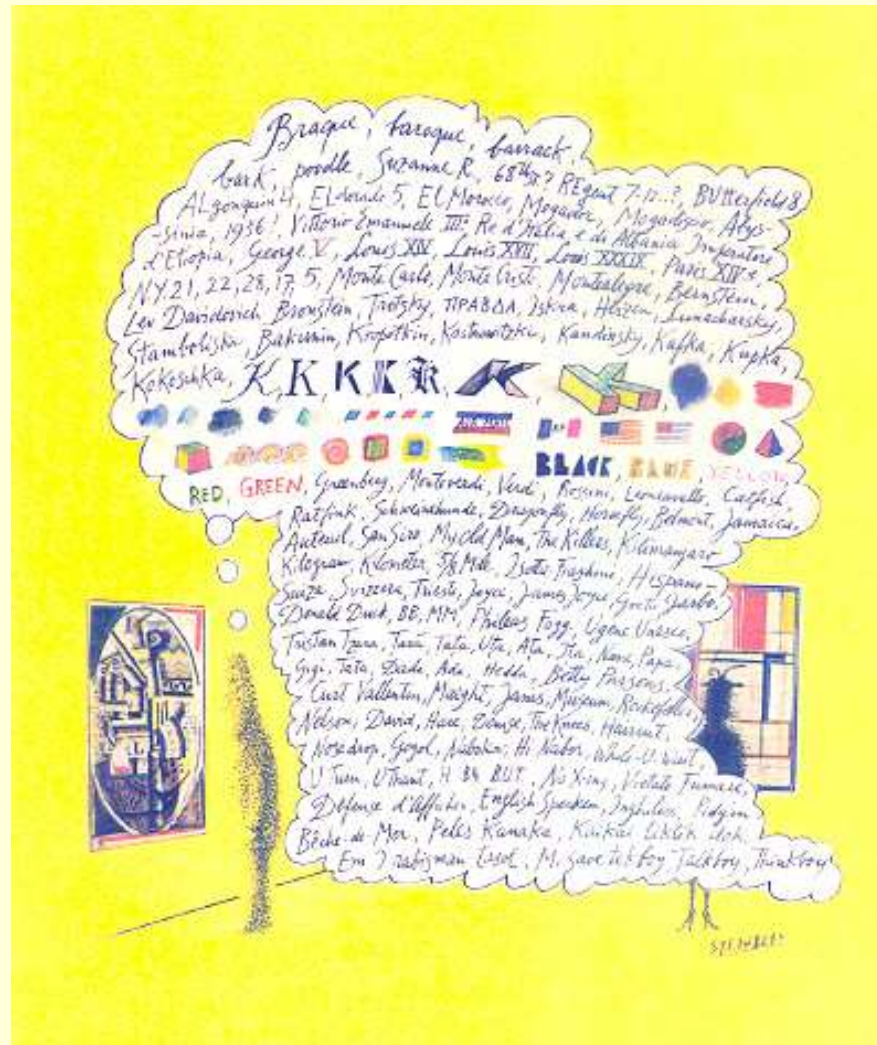 Braque, baroque, barrack,
bark, poodle, Suzanne R, 68th St? REgent 7-12..?, BUtterfield 8
ALgonquin 4, ELdorado 5, El Morocco, Mogador, Mogadiscio, Abys-
-sinia, 1936!, Vittorio Emanuele III: Re d'Italia e di Albania Imperatore
d'Etiopia, George V, Louis XIV, Louis XVII, Louis XXXIX, Paris XIVe,
N.Y. 21, 22, 28, 17, 5, Monte Carlo, Monte Cristo, Montealegre, Bernstein,
Lev Davidovich Bronstein, Trotzky, ПРАВДА, Iskra, Herzen, Lunacharsky,
Stamboliski, Bakunin, Kropotkin, Kostrowitzki, Kandinsky, Kafka, Kupka,
Kokoschka, K, K, K, K, K, K, K
BLACK, BLUE, YELLOW
RED, GREEN, Greenberg, Monteverdi, Verdi, Rossini, Leoncavallo, Catfish,
Ratfink, Schweinehunde, Dragonfly, Horsefly, Belmont, Jamaica,
Auteuil, San Siro, My Old Man, The Killers, Kilimanjaro
Kilogram, Kilometer, 5/8 Mile, Isotta Fraschini, Hispano-
Suiza, Svizzera, Trieste, Joyce, James Joyce, Greta Garbo,
Donald Duck, BB, MM, Phileas Fogg, Ugene Unesco,
Tristan Tzara, Tara, Tata, Uta, Ata, Ita, Nana, Papa,
Gigi, Tata, Dada, Ada, Hedda, Betty Parsons,
Curt Vallentin, Maeght, Janis, Museum, Rockefeller,
Nelson, David, Hare, Louise, The Knees, Haircut,
Nosedrop, Gogol, Nabokov, Hi Nabor, While-U-Wait,
U Turn, U Thant, H. B4, BUT, No X-ing, Vietato Fumare,
Défense d'Afficher, English Spoken, Pidgin
Bêche-de-Mer, Peles Kanaka, Kaikai
Em I M. save tok boy, Talkboy, Thinkboy
STEINBERG